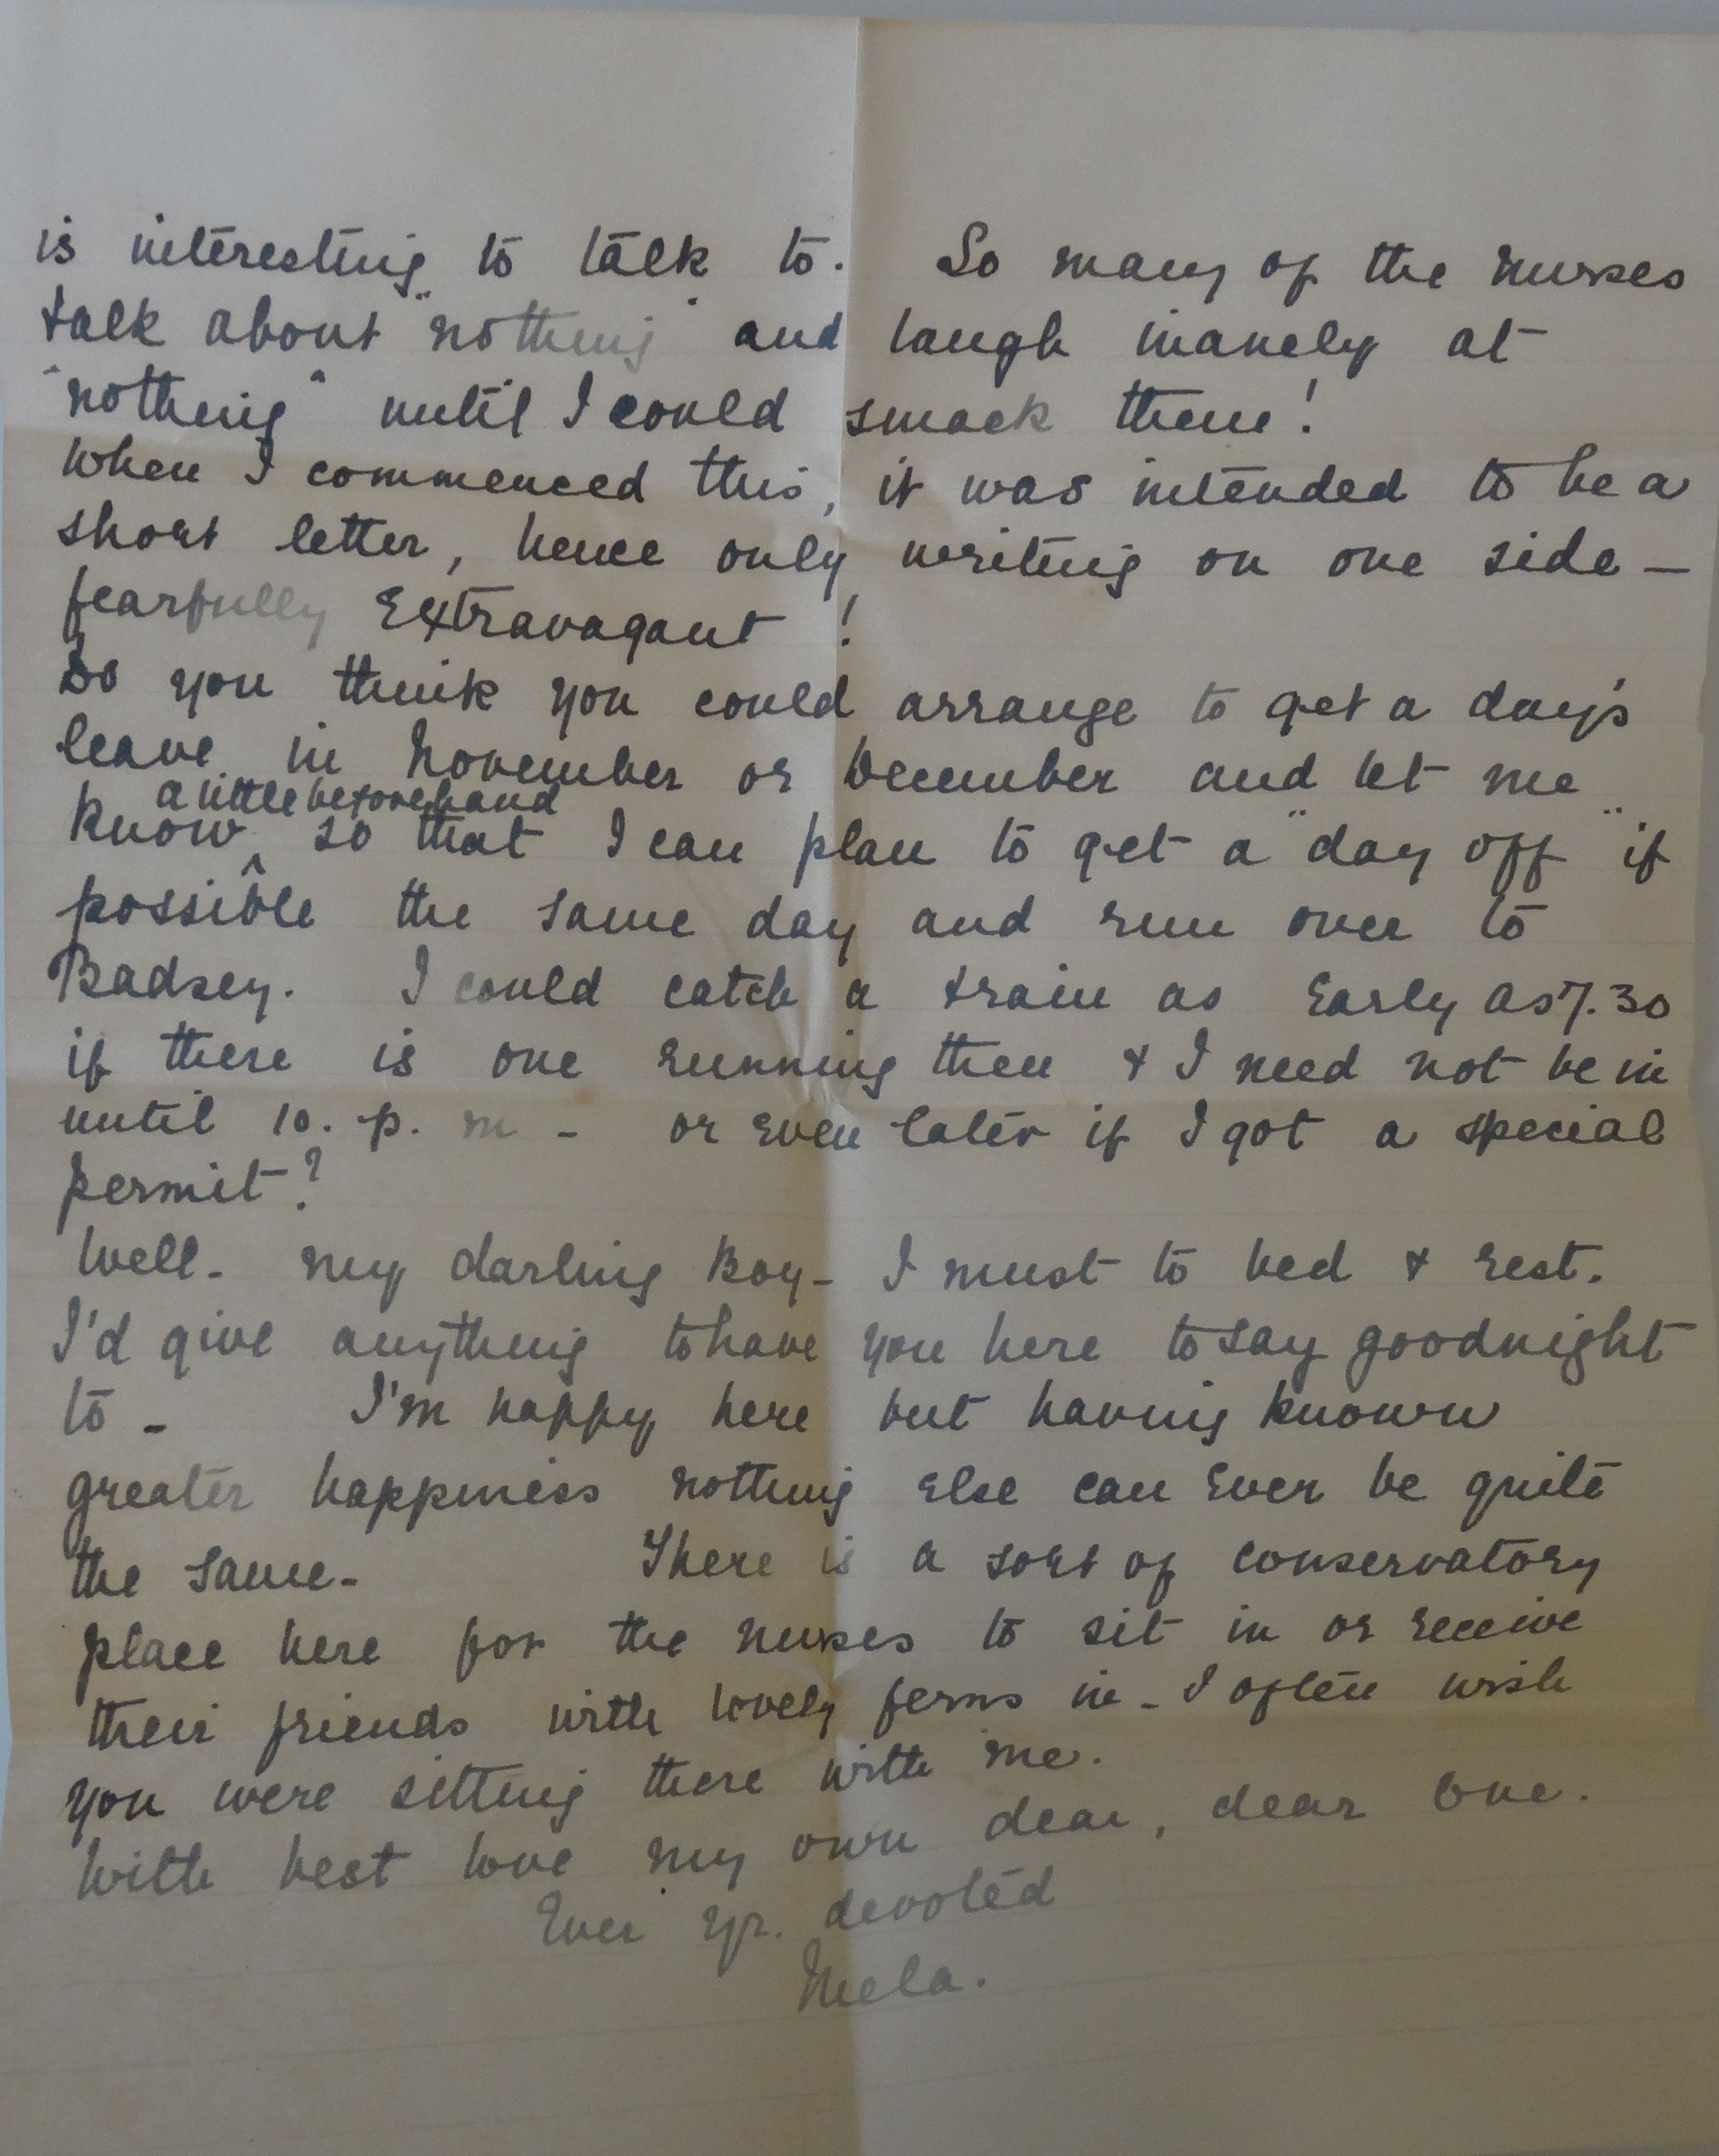 is interesting to talk to. So many of the nurses
talk about "nothing" and laugh inanely at
"nothing" until I could smack them!
When I commenced this, it was intended to be a
short letter, hence only writing on one side —
fearfully Extravagant!
Do you think you could arrange to get a day's
leave in November or December and let me
a little beforehand
know ^ so that I can plan to get a "day off" if
possible the same day and run over to
Badsey. I could catch a train as Early as 7.30
if there is one running then & I need not be in
until 10. p. m - or Even later if I got a special
permit?
Well - my darling Boy - I must to bed & rest.
I'd give anything to have you here to say goodnight
to - I'm happy here but having known
greater happiness nothing Else can Ever be quite
the same - There is a sort of conservatory
place here for the nurses to sit in or receive
their friends with lovely ferns in - I often wish
you were sitting there with me.
With best love my own dear, dear One.
Ever yr. devoted
Mela.